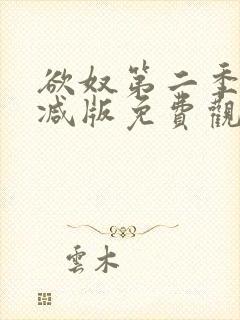 欲奴第二季
减版免費觀
雲木